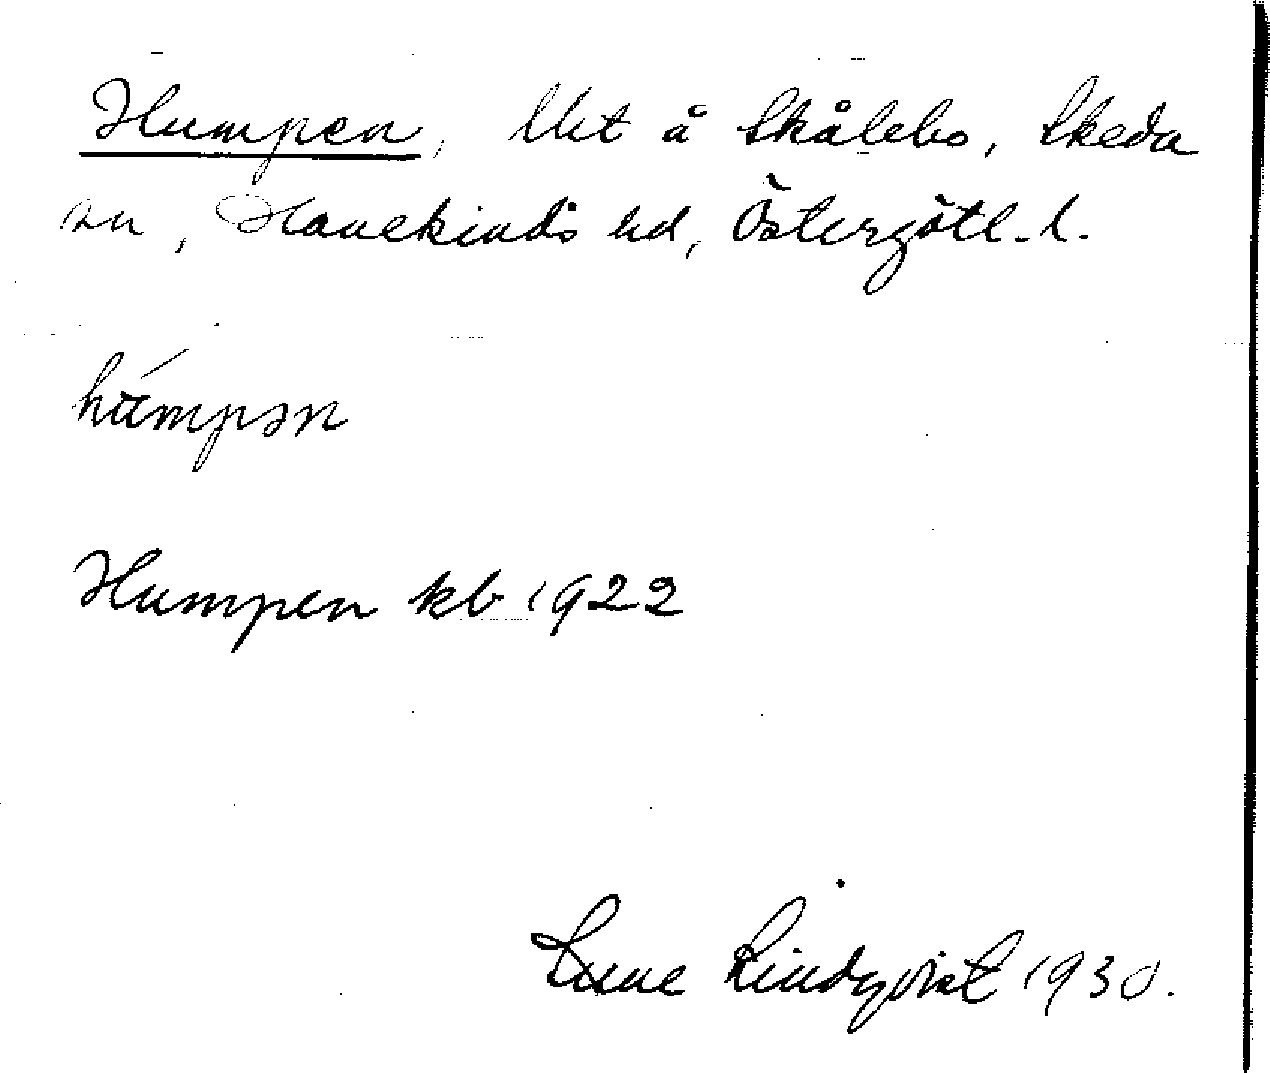 Humpen, lht å Skålebo, Skeda
sn, Hanekinds hd, Östergötl. l.
hu̇́mpən
Humpen kb 1922
Sune Lindqvist 1930.